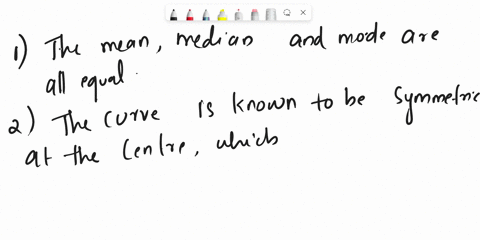 1) The mean, median and mode are
all equal.
2) The curve is known to be symmetric
at the centre, which